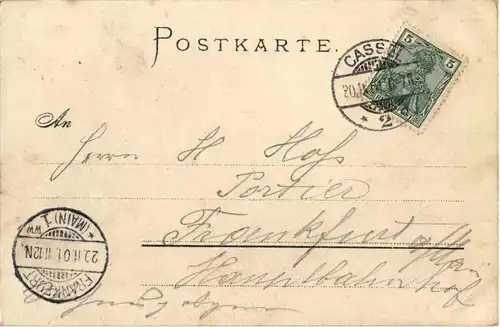 POSTKARTE.
CASSEL
* 2
5 5
An
Herrn H Hofs
Portier
Frankfurt a/Main
Hauptbahnhof
FRANKFURT
20.11.01. 11-12N.
* (MAIN) 1